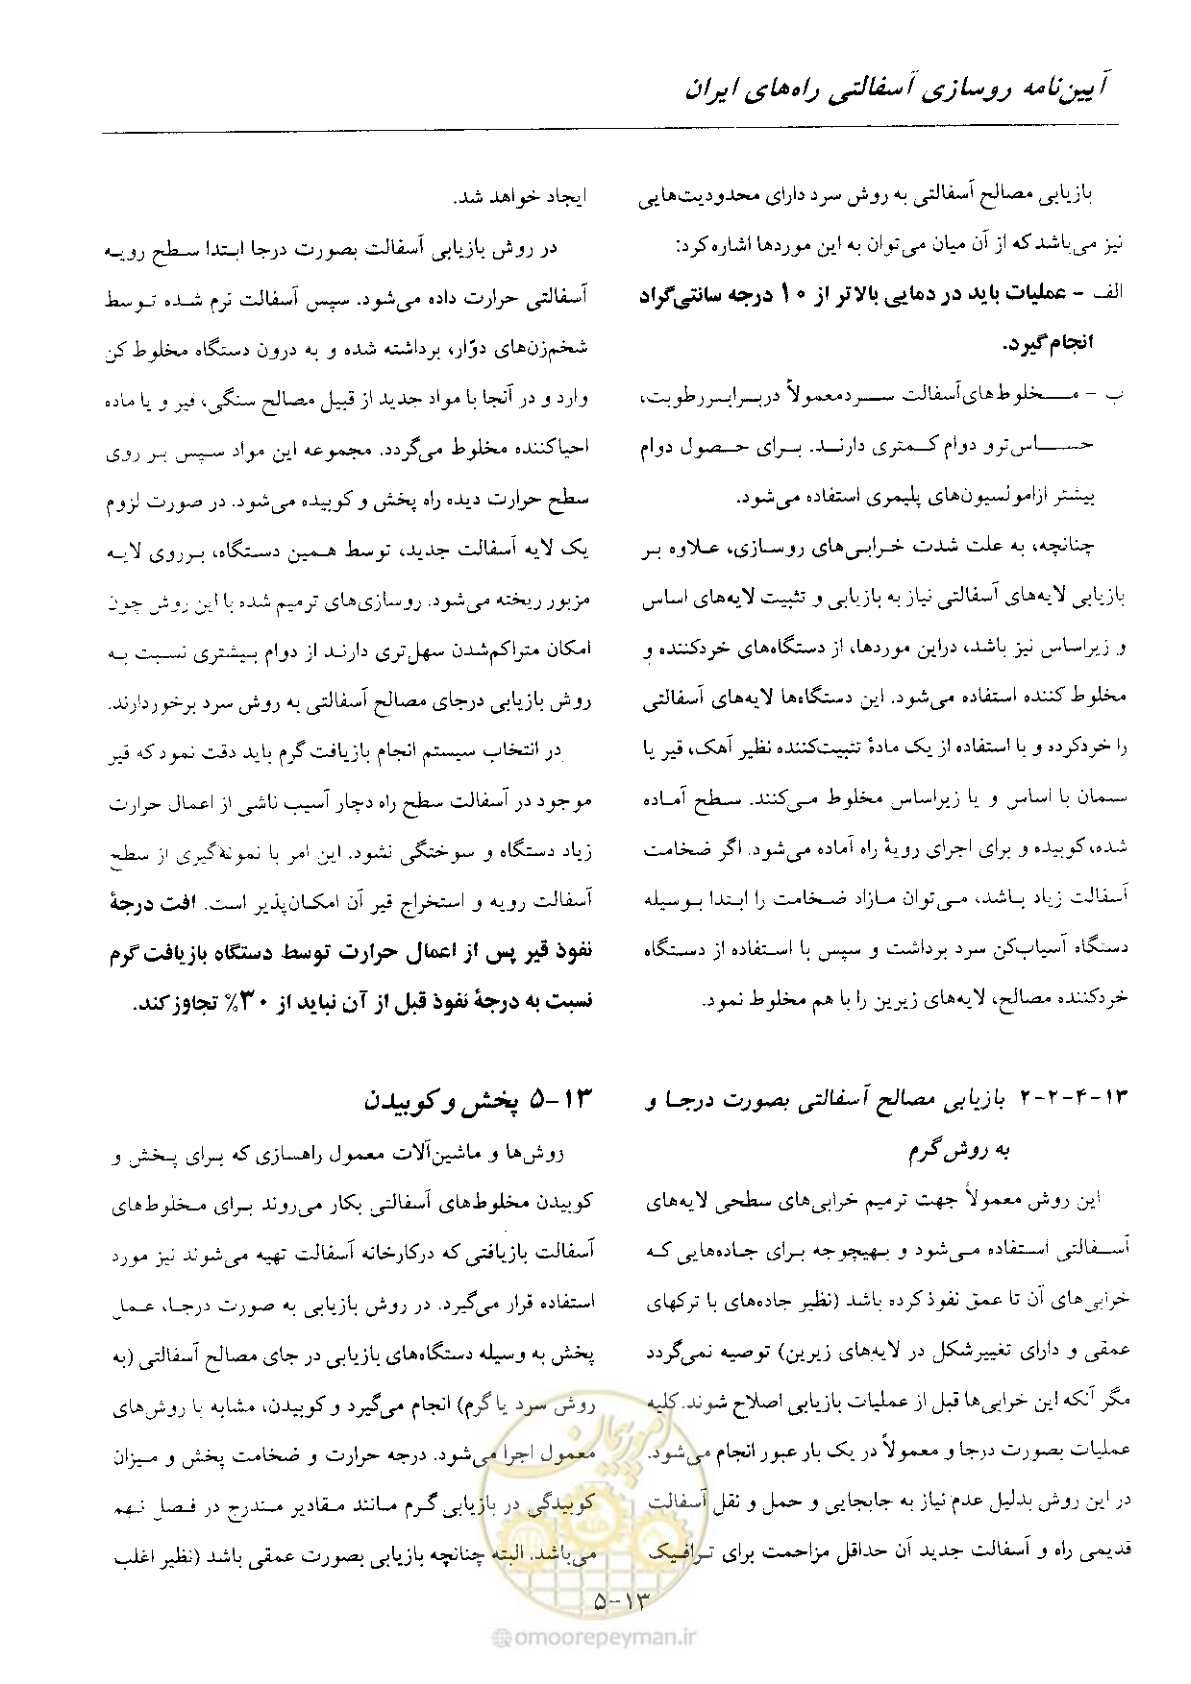 آیین‌نامه روسازی آسفالتی راه‌های ایران
بازیابی مصالح آسفالتی به روش سرد دارای محدودیت‌هایی
نیز می‌باشد که از آن میان می‌توان به این موردها اشاره کرد:
الف - عملیات باید در دمایی بالاتر از ۱۰ درجه سانتی‌گراد
انجام گیرد.
ب - مخلوط‌های آسفالت سرد معمولاً در برابر رطوبت،
حساس‌تر و دوام کمتری دارند. برای حصول دوام
بیشتر از امولسیون‌های پلیمری استفاده می‌شود.
چنانچه، به علت شدت خرابی‌های روسازی، علاوه بر
بازیابی لایه‌های آسفالتی نیاز به بازیابی و تثبیت لایه‌های اساس
و زیراساس نیز باشد، دراین موردها، از دستگاه‌های خردکننده و
مخلوط کننده استفاده می‌شود. این دستگاه‌ها لایه‌های آسفالتی
را خردکرده و با استفاده از یک مادهٔ تثبیت‌کننده نظیر آهک، قیر یا
سیمان با اساس و یا زیراساس مخلوط می‌کنند. سطح آماده
شده، کوبیده و برای اجرای رویهٔ راه آماده می‌شود. اگر ضخامت
آسفالت زیاد باشد، می‌توان مازاد ضخامت را ابتدا بوسیله
دستگاه آسیاب‌کن سرد برداشت و سپس با استفاده از دستگاه
خردکننده مصالح، لایه‌های زیرین را با هم مخلوط نمود.
۱۳-۴-۲-۲ بازیابی مصالح آسفالتی بصورت درجا و
به روش گرم
این روش معمولاً جهت ترمیم خرابی‌های سطحی لایه‌های
آسفالتی استفاده می‌شود و بهیچوجه برای جاده‌هایی که
خرابی‌های آن تا عمق نفوذ کرده باشد (نظیر جاده‌های با ترکهای
عمقی و دارای تغییرشکل در لایه‌های زیرین) توصیه نمی‌گردد
مگر آنکه این خرابی‌ها قبل از عملیات بازیابی اصلاح شوند. کلیه
عملیات بصورت درجا و معمولاً در یک بار عبور انجام می‌شود.
در این روش بدلیل عدم نیاز به جابجایی و حمل و نقل آسفالت
قدیمی راه و آسفالت جدید آن حداقل مزاحمت برای ترافیک
ایجاد خواهد شد.
در روش بازیابی آسفالت بصورت درجا ابتدا سطح رویه
آسفالتی حرارت داده می‌شود. سپس آسفالت نرم شده توسط
شخم‌زن‌های دوّار، برداشته شده و به درون دستگاه مخلوط کن
وارد و در آنجا با مواد جدید از قبیل مصالح سنگی، قیر و یا ماده
احیاکننده مخلوط می‌گردد. مجموعه این مواد سپس بر روی
سطح حرارت دیده راه پخش و کوبیده می‌شود. در صورت لزوم
یک لایه آسفالت جدید، توسط همین دستگاه، برروی لایه
مزبور ریخته می‌شود. روسازی‌های ترمیم شده با این روش چون
امکان متراکم‌شدن سهل‌تری دارند از دوام بیشتری نسبت به
روش بازیابی درجای مصالح آسفالتی به روش سرد برخوردارند.
در انتخاب سیستم انجام بازیافت گرم باید دقت نمود که قیر
موجود در آسفالت سطح راه دچار آسیب ناشی از اعمال حرارت
زیاد دستگاه و سوختگی نشود. این امر با نمونه‌گیری از سطح
آسفالت رویه و استخراج قیر آن امکان‌پذیر است. افت درجهٔ
نفوذ قیر پس از اعمال حرارت توسط دستگاه بازیافت گرم
نسبت به درجهٔ نفوذ قبل از آن نباید از ۳۰٪ تجاوز کند.
۱۳-۵ پخش و کوبیدن
روش‌ها و ماشین‌آلات معمول راهسازی که برای پخش و
کوبیدن مخلوط‌های آسفالتی بکار می‌روند برای مخلوط‌های
آسفالت بازیافتی که درکارخانه آسفالت تهیه می‌شوند نیز مورد
استفاده قرار می‌گیرد. در روش بازیابی به صورت درجا، عمل
پخش به وسیله دستگاه‌های بازیابی در جای مصالح آسفالتی (به
روش سرد یا گرم) انجام می‌گیرد و کوبیدن، مشابه با روش‌های
معمول اجرا می‌شود. درجه حرارت و ضخامت پخش و میزان
کوبیدگی در بازیابی گرم مانند مقادیر مندرج در فصل نهم
می‌باشد. البته چنانچه بازیابی بصورت عمقی باشد (نظیر اغلب
۱۳-۵
امور پیمان
@omoorepeyman.ir